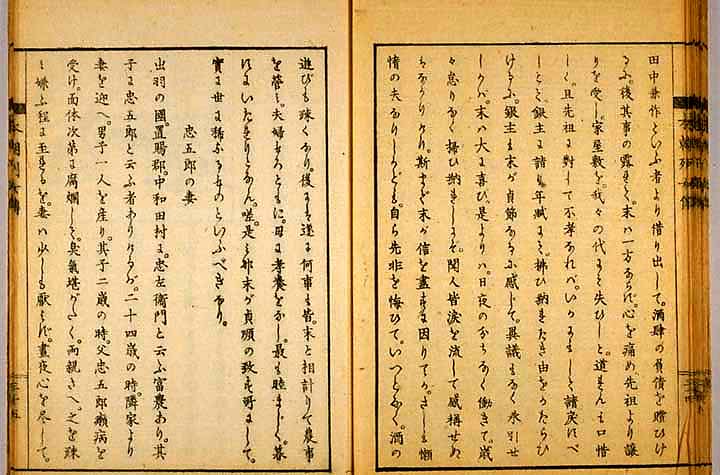 田中兼作といふ者より借り出して。酒肆の負債を贖ひけ
るに。後其事の露はるゝや。末ハ一方ならず。心を痛め。先祖より讓
りを受し。家屋敷を。我々の代にて失ひしと。も口惜
しく。且先祖に對して不孝なれバ。いかにもして
しとて。銀主に諸り年賦にて。拂ひ納めたき由をかたらひ
けるに。銀主も末が貞節なるに感じて。異議もなく承引せ
しかバ。末ハ大に喜び。是よりハ。日夜のわかちなく働きて。歳
々怠りなく拂ひ納めしにぞ。聞人皆涙を流して感称せぬ
はなかりけり。斯まで末が信を盡すに因りてか。さしも懶
惰の夫なりしかども。自ら先非を悔ひて。いつとなく。酒の
遊びも疎くなり。後にハ遂に何事も皆。末と相計りて農事
を營み。夫婦もろともに。母に孝養をなし。最も睦ましく。暮
けるにいたれりとなん。嗟。是も那末が貞順の致す所にして。
實に世に稀なる女のといふべきなり。
忠五郎の妻
出羽の國。置賜郡。中和田村に。忠左衛門と云ふ富農あり。其
子に忠五郎と云ふ者ありけるが。二十四歳の時。隣家より
妻を迎へ。男子一人を産り。其子二歳の時。父忠五郎癩病を
受け。面体次第に腐爛して。臭氣堪がたく。兩親さへ。之を疎
ミ嫌ふ程に至りしを。妻ハ少しも厭はず。晝夜心を尽して。